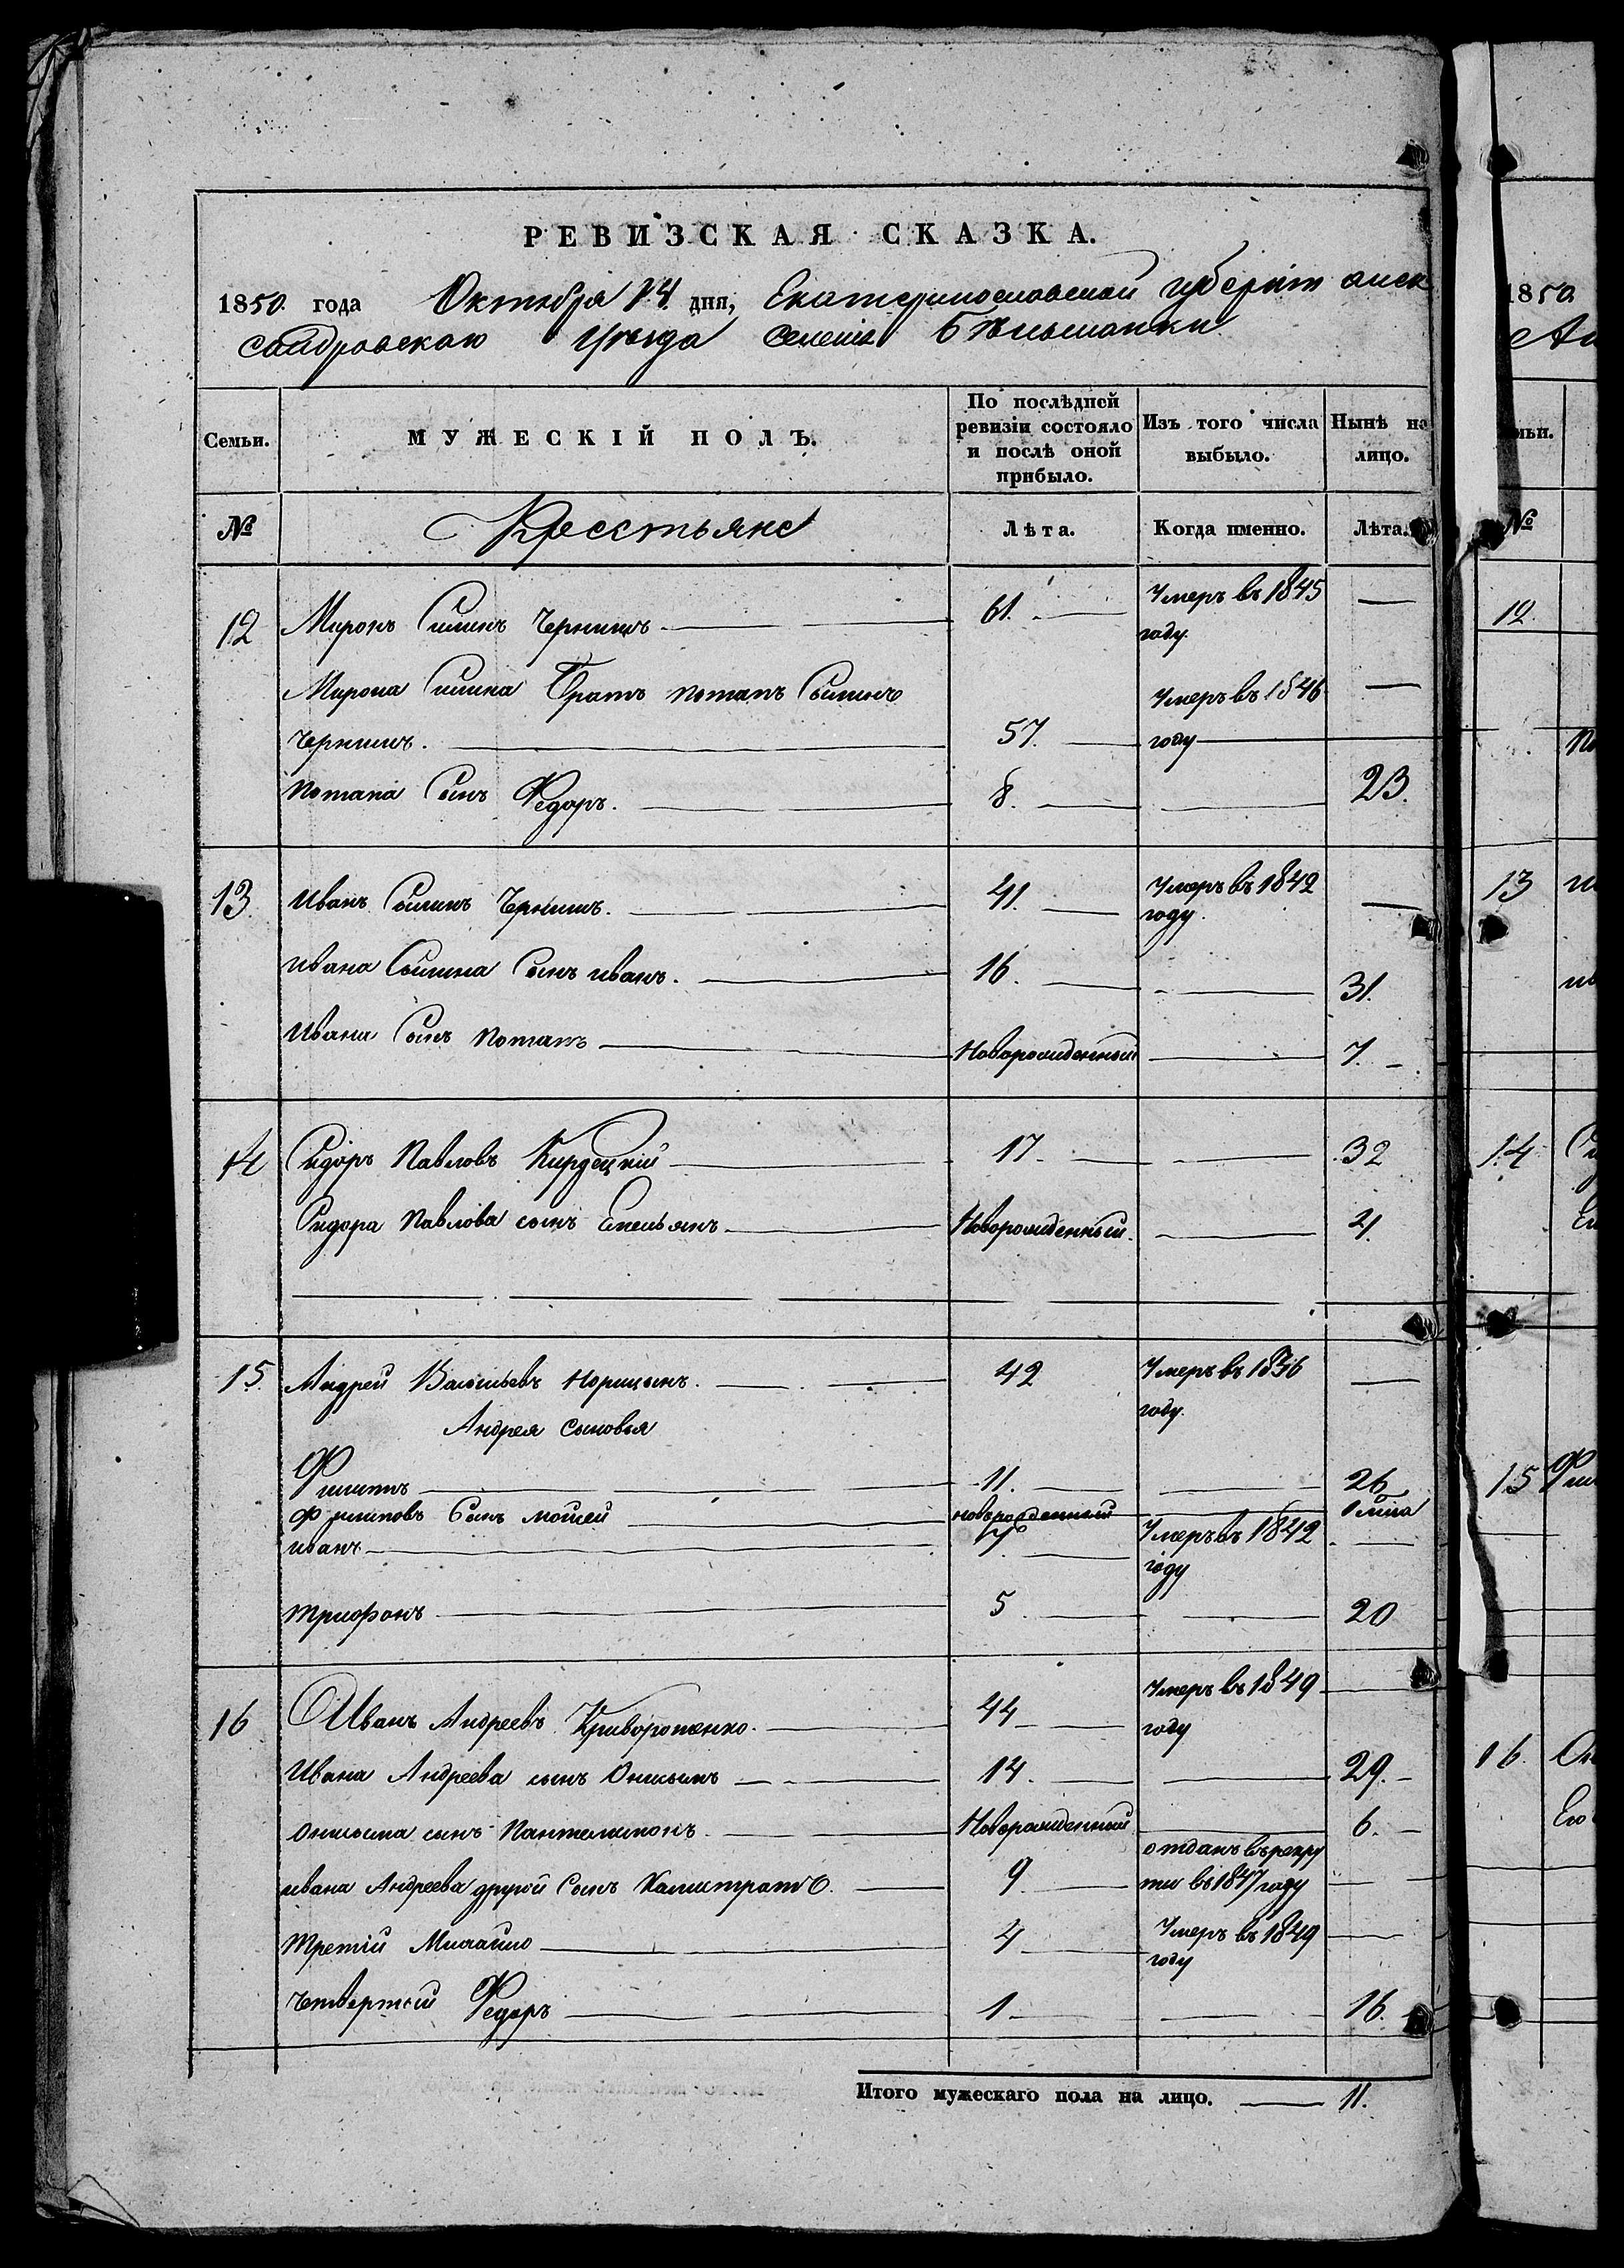 РЕВИЗСКАЯ СКАЗКА.
1850 года Октября 14 дня, Екатеринославской губерніи алек
сандровскаго уѣзда селенія Бѣльманки
Семьи. МУЖЕСКІЙ ПОЛЪ. По послѣдней ревизіи состояло и послѣ оной прибыло. Изъ того числа выбыло. Нынѣ на лицо.
№ Крестьяне Лѣта. Когда именно. Лѣта.
12 Миронъ Силинъ Чернишъ 61. Умеръ въ 1845 году. —
Мирона Силина Братъ Потапъ Силинъ
Чернишъ. 57. Умеръ въ 1846 году —
Потапа Сынъ Федоръ. 8. 23.
13 Иванъ Силинъ Чернишъ. 41. Умеръ въ 1842 году. —
Ивана Силина Сынъ иванъ. 16. 31.
Ивана Сынъ Потапъ Новорожденный 7.
14 Сидоръ Павловъ Кирдецкій 17 32
Сидора Павлова сынъ Емельянъ Новорожденный. 4.
15. Андрей Васильевъ Норицынъ. 42 Умеръ въ 1836 году. —
Андрея Сыновья
Филипъ 11. 26
Филиповъ Сынъ Мойсей новорожденный
иванъ 7. Умеръ въ 1842 году —
трифонъ 5 20
16 Иванъ Андреевъ Криворотенко. 44 Умеръ въ 1849 году —
Ивана Андреева сынъ Онисымъ 14. 29.
Онисыма сынъ Пантелимонъ Новорожденный 6.
ивана Андреева другой Сынъ Калистратъ. 9 отданъ въ рекру
ти въ 1847 году —
Третій Михайло 4 Умеръ въ 1849 году —
Четвертый Федоръ 1 16.
Итого мужескаго пола на лицо. 11.
1850
мьи.
№
12.
13
14
15
16.